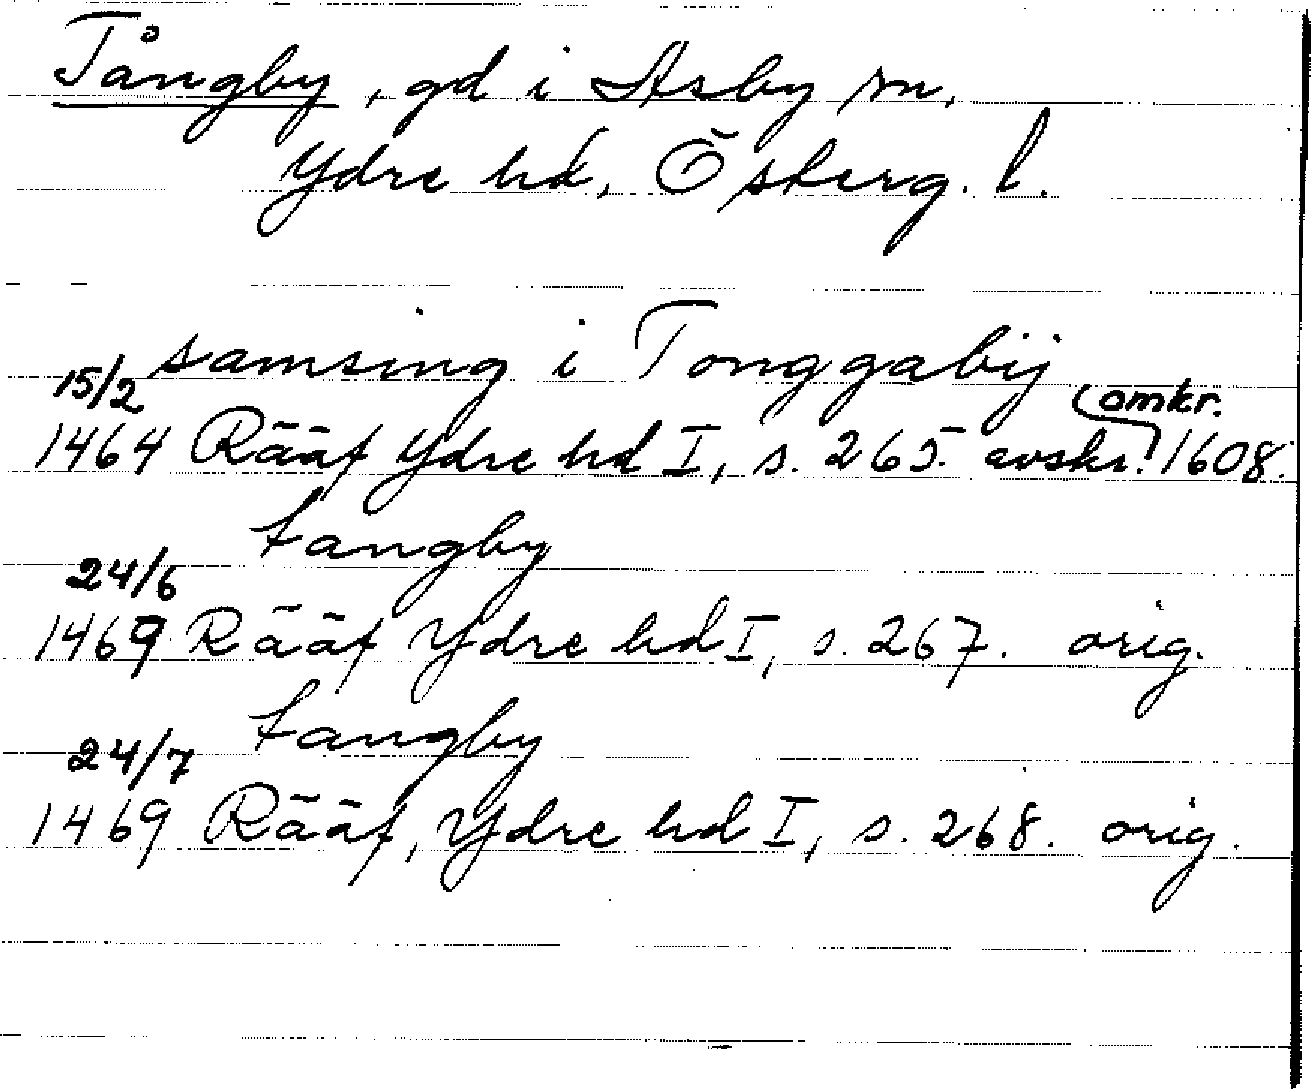 Tångby, gd i Asby sn,
Ydre hd, Österg. l.
samsing i Tonggabij
15/2
1464 Rääf Ydre hd I, s. 265. avskr. omkr. 1608.
tangby
24/6
1469 Rääf Ydre hd I, s. 267. orig.
tangby
24/7
1469 Rääf, Ydre hd I, s. 268. orig.